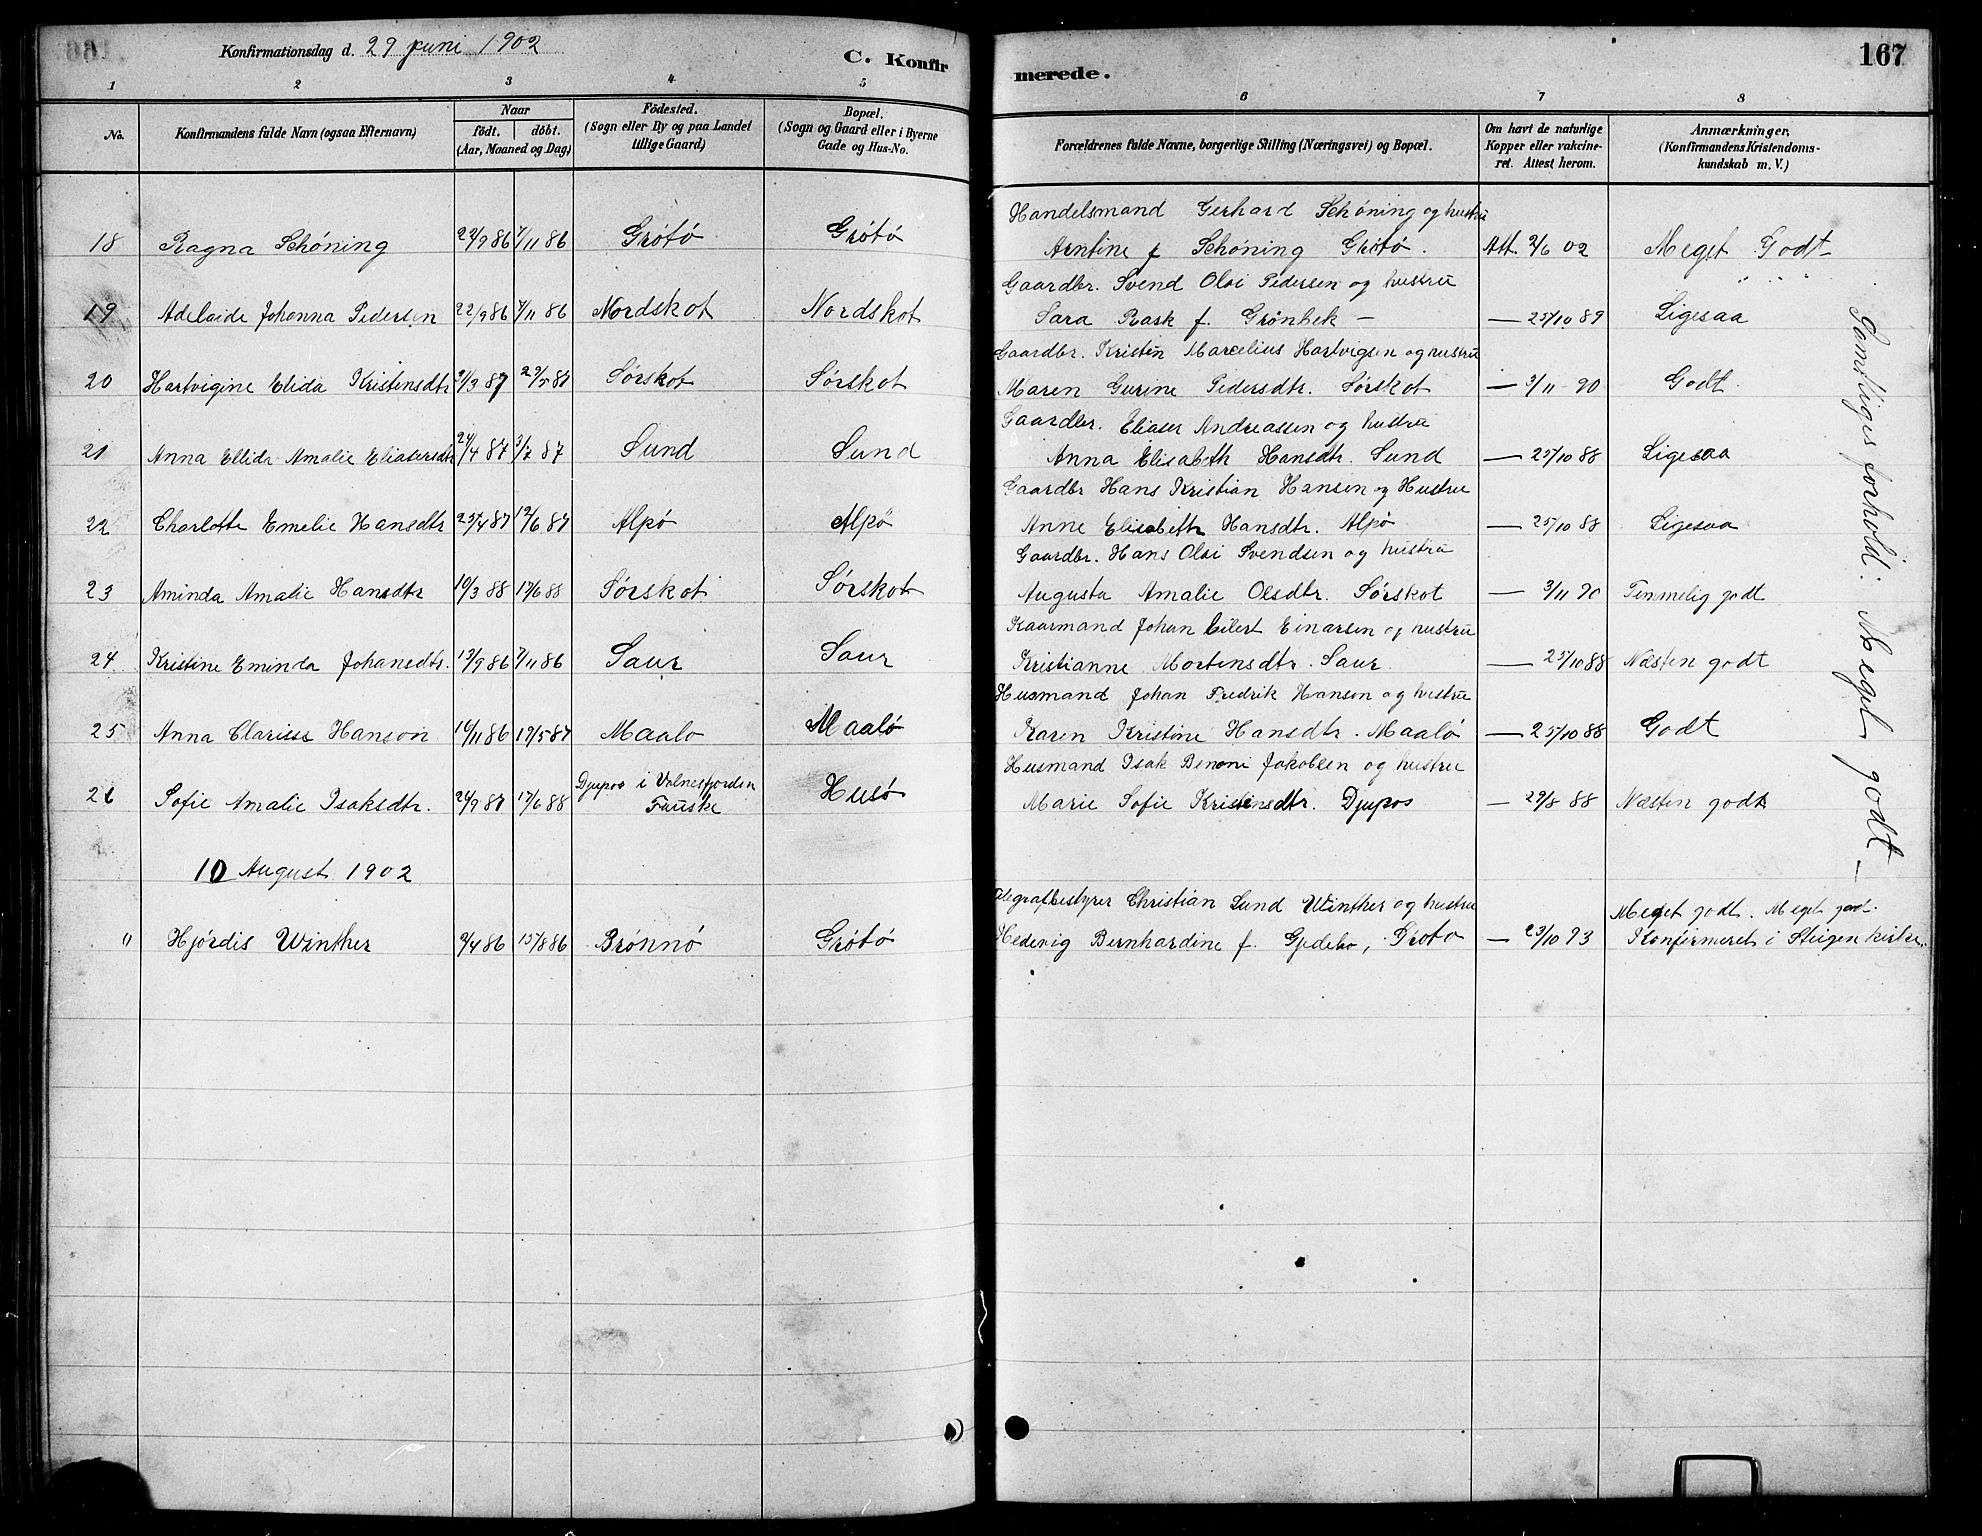 Konfirmationsdag d. 29 juni 1902
C. Konfir
merede.
167
1 2 3 4 5 6 7 8
No.
Konfirmandens fulde Navn (ogsaa Efternavn)
Naar
födt. döbt.
(Aar, Maaned og Dag)
Födested.
(Sogn eller By og paa Landet
tillige Gaard)
Bopæl.
(Sogn og Gaard eller i Byerne
Gade og Hus-No.
Forældrenes fulde Navne, borgerlige Stilling (Næringsvei) og Bopæl.
Om havt de naturlige
Kopper eller vakcine-
ret. Attest herom.
Anmærkninger.
(Konfirmandens Kristendoms-
kundskab m. V.)
Handelsmand Gerhard Schöning og hustru
18 Ragna Schöning 22/9 86 7/11 86 Grötö Grötö Arntine f Schöning Grötö. Att. 2/6 02 Meget Godt
Gaardbr. Svend Olai Pedersen og hustru
19 Adelaide Johanna Pedersen 22/9 86 7/11 86 Nordskot Nordskot Sara Rask f. Grönbek — — 25/10 89 Ligesaa
Gaardbr. Kristen Marcelius Hartvigsen og hustru
20 Hartvigine Elida Kristensdtr 21/3 87 29/5 87 Sörskot Sörskot Maren Gurine Pedersdtr. Sörskot — 3/11 90 Godt
Gaardbr. Eliaser Andreassen og hustru
21 Anna Ellida Amalie Eliasersdtr 24/4 87 3/7 87 Sund Sund Anna Elisabeth Hansdtr. Sund — 25/10 88 Ligesaa
Gaardbr Hans Kristian Hansen og Hustru
22 Charlotte Emelie Hansdtr 25/4 87 12/6 87 Alpö Alpö Anne Elisabeth Hansdtr. Alpö — 25/10 88 Ligesaa
Gaardbr. Hans Olai Svendsen og hustru
23 Aminda Amalie Hansdtr 10/3 88 17/6 88 Sörskot Sörskot Augusta Amalie Olsdtr. Sörskot — 3/11 90 Temmelig godt
Kaarmand Johan Eilert Einarsen og hustru
24 Kristine Eminda Johansdtr. 13/9 86 7/11 86 Saur Saur Kristianne Mortensdtr. Saur. — 25/10 88 Næsten godt
Husmand Johan Fredrik Hansen og hustru
25 Anna Clarisse Hanson 16/11 86 19/5 87 Maalö Maalö Karen Kristine Hansdtr. Maalö — 25/10 88 Godt
Husmand Isak Benoni Jakobsen og hustru
26 Sofie Amalie Isaksdtr. 24/9 87 17/6 88 Djupos i Valnesfjorden Fauske Husö Marie Sofie Kristensdtr. Djupos — 29/8 88 Næsten godt
10 August 1902
Telegrafbestyrer Christian Lund Winther og hustru Meget godt. Meget godt.
" Hjördis Winther 2/4 86 15/8 86 Brönnö Grötö Hedevig Bernhardine f. Gjedebo, Grötö — 23/10 93 Konfirmeret i Steigen kirke.
Samtliges forhold: Meget godt —